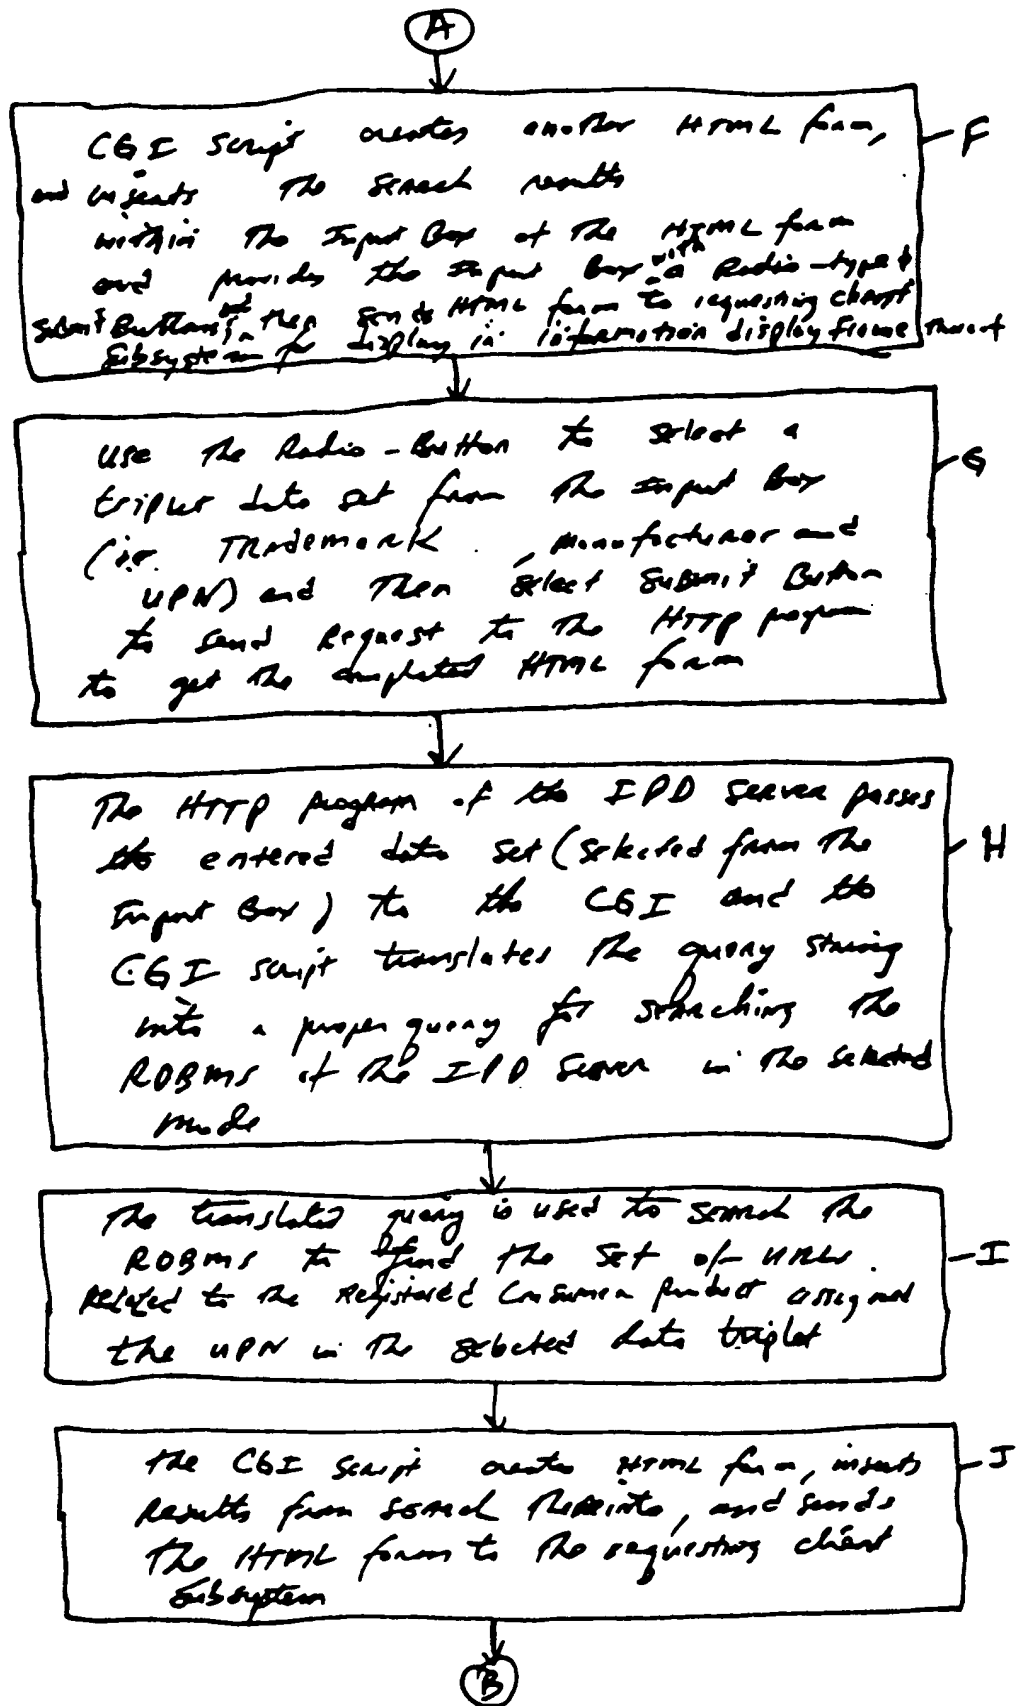 A
CGI script creates another HTML form,
and inserts the search results
within the Input Box of the HTML form
and provides the Input Box with a Radio-type &
Submit Buttons, and then sends HTML form to requesting client
Subsystem for display in information display frame thereof
F
Use the Radio-Button to select a
triplet data set from the Input Box
(i.e. Trademark, manufacturer and
UPN) and then select Submit Button
to send Request to the HTTP program
to get the completed HTML form
G
The HTTP program of the IPD Server passes
the entered data set (selected from the
Input Box) to the CGI and the
CGI script translates the query string
into a proper query for searching the
RDBMS of the IPD Server in the selected
mode
H
The translated query is used to search the
RDBMS to find the set of URLs
Related to the Registered Consumer product assigned
the UPN in the selected data triplet
I
the CGI script creates HTML form, inserts
Results from search thereinto, and sends
the HTML form to the requesting client
Subsystem
J
B